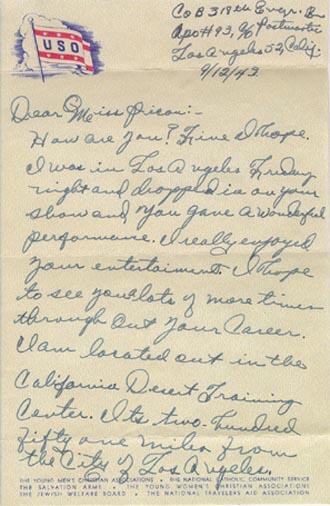 USO
Co B 318th Engr. Bn
Apo #93, % Postmaster
Los Angeles 52, Calif.
9/12/43.
Dear Miss Picon:-
How are you? Fine I hope.
I was in Los Angeles Friday
night and dropped in on your
show and you gave a wonderful
performance. I really enjoyed
your entertaiment. I hope
to see you lots of more times
through out your Career.
I am located out in the
California Desert Training
Center. Its two-hundred
fifty one miles from
the City of Los Angeles.
THE YOUNG MEN'S CHRISTIAN ASSOCIATIONS · THE NATIONAL CATHOLIC COMMUNITY SERVICE
THE SALVATION ARMY · THE YOUNG WOMEN'S CHRISTIAN ASSOCIATIONS
THE JEWISH WELFARE BOARD · THE NATIONAL TRAVELERS AID ASSOCIATION